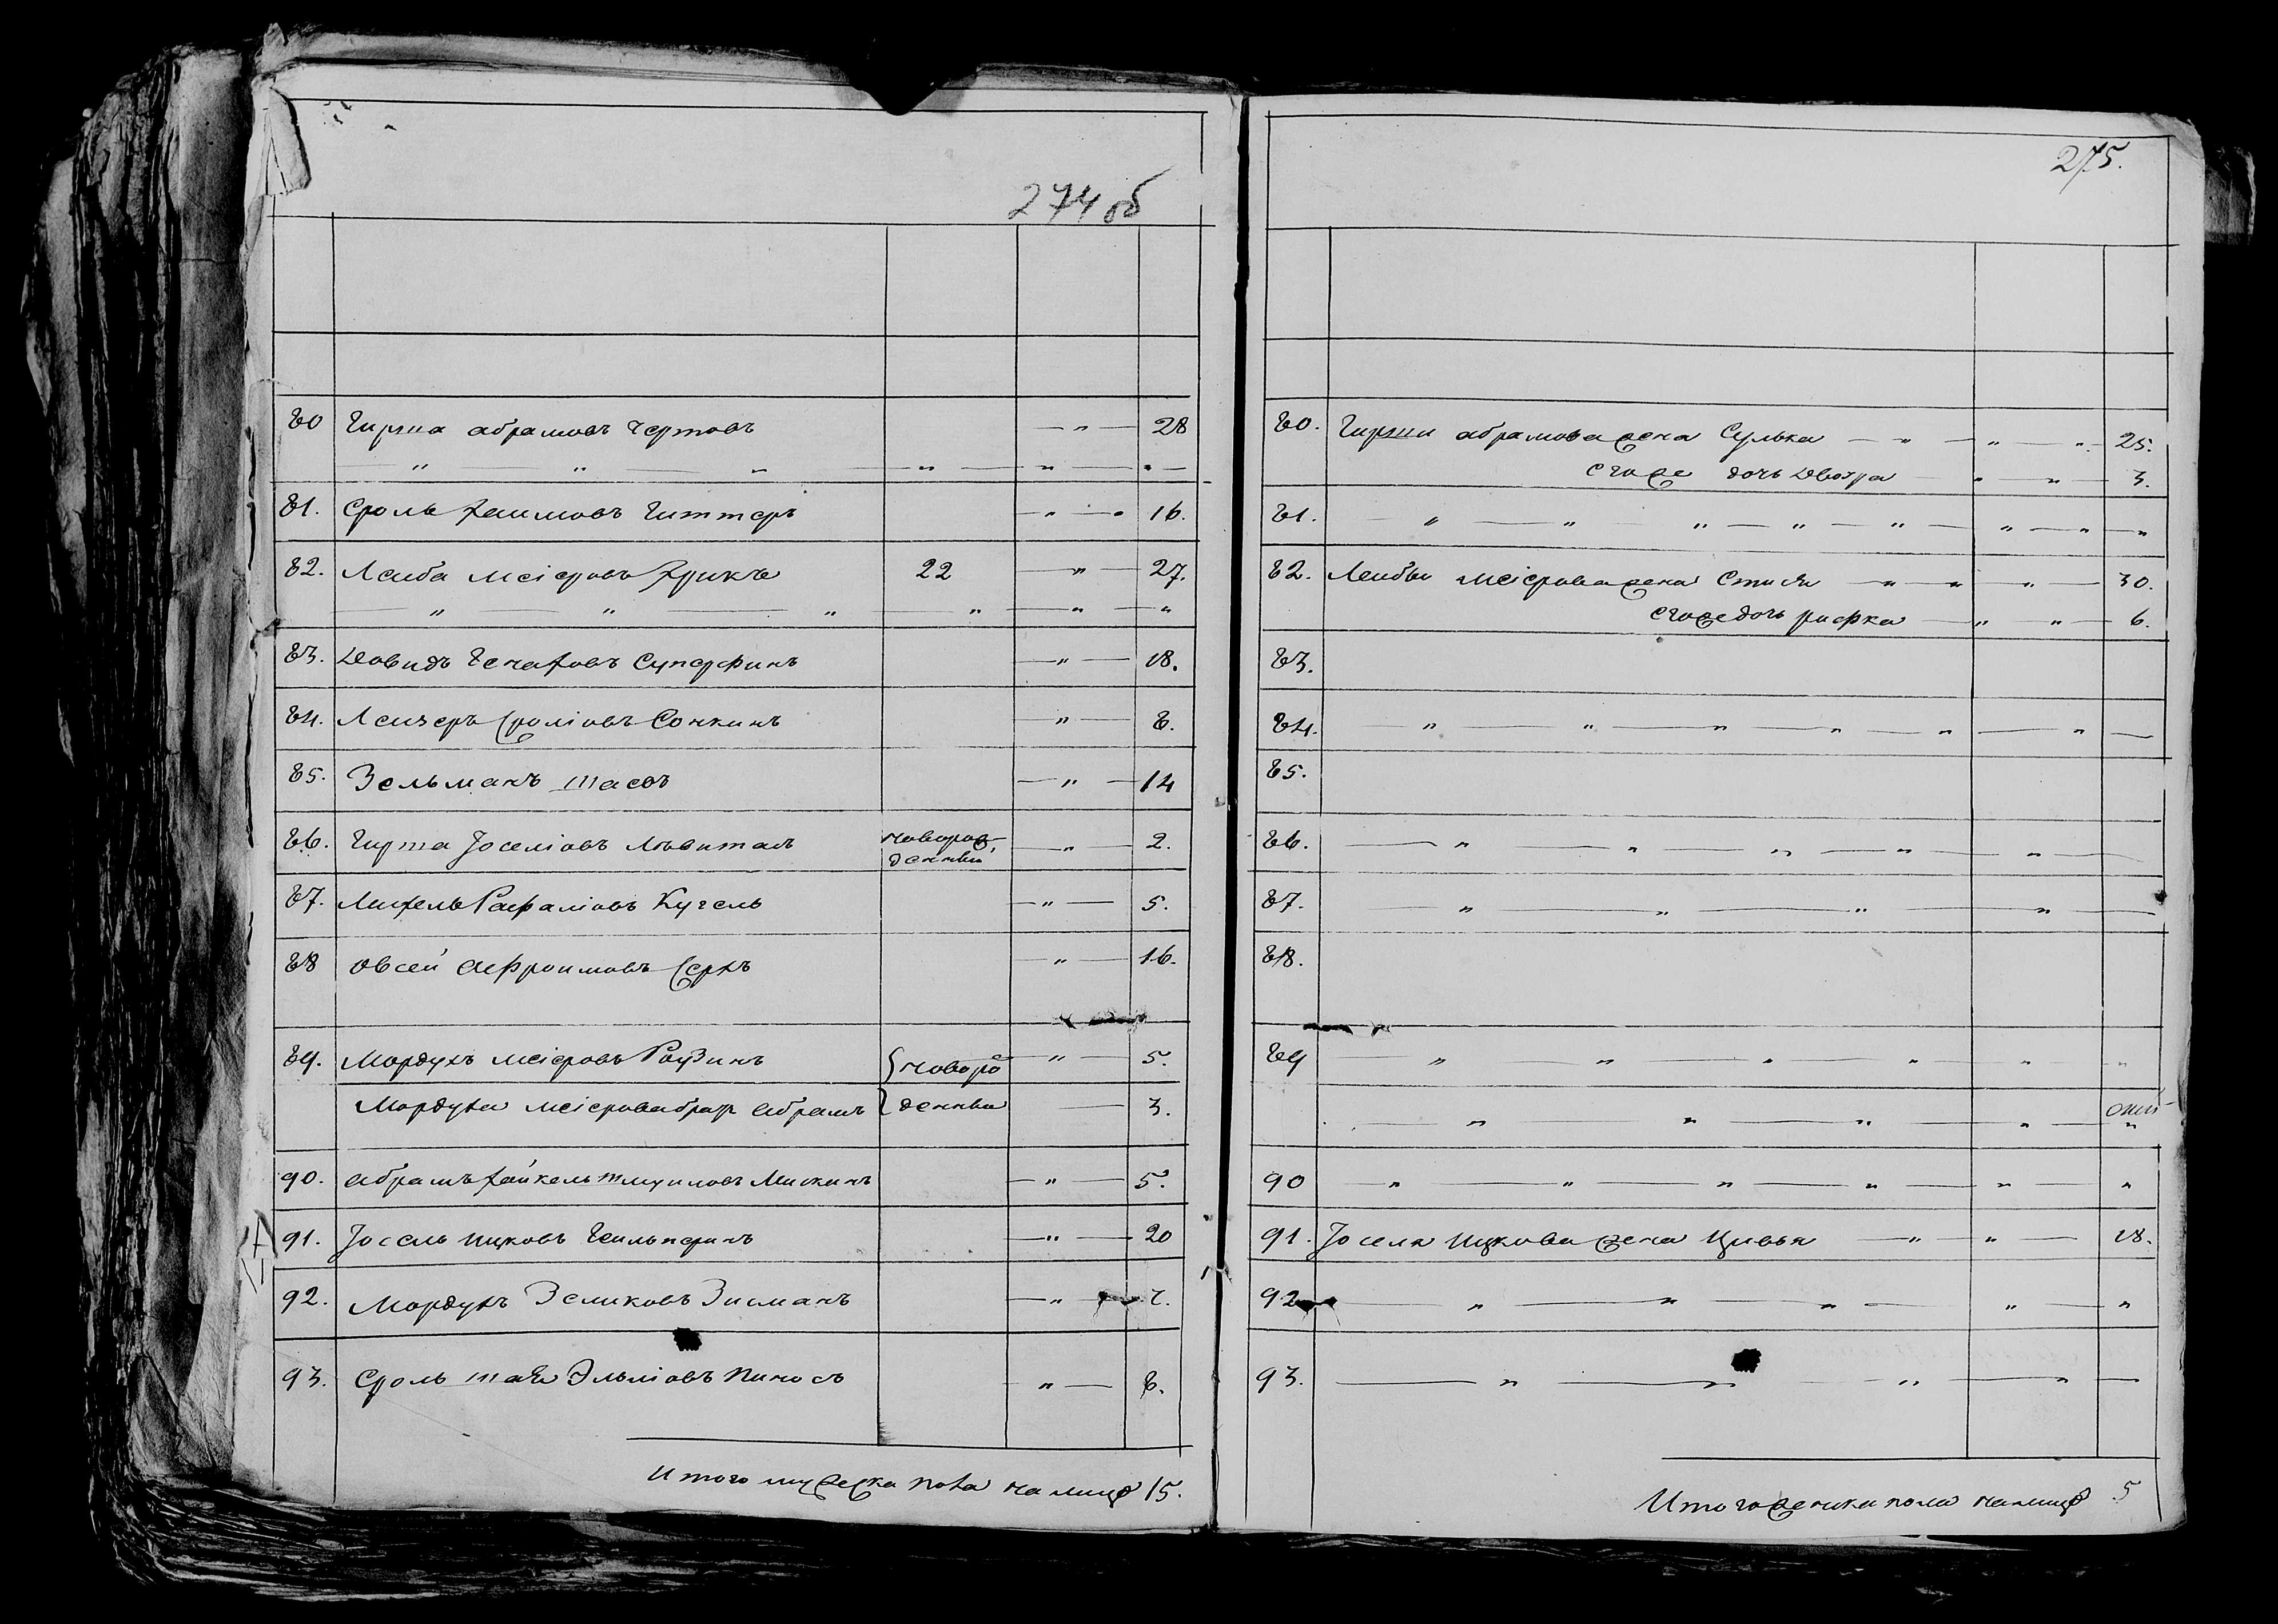 274 об
80 Гирша абрамовъ Чертовъ — " — 28
" " " " " "
81. Сроль Хаимовъ Гиттеръ — " — 16.
82. Леиба Меіеровъ Хрикъ 22 — " — 27.
" " " " " "
83. Довидъ Генаховъ Суперфинъ — " — 18.
84. Леизеръ Сроліовъ Сонкинъ " — 8.
85. Зельманъ Шасъ — " — 14
86. Гирша Іоселіовъ Левиталъ новорож — " — 2.
денныи
87. Михель Рафаліовъ Кугель — " — 5.
88 Овсей Афроимовъ — " — 16.
89. Мордухъ Меіеровъ Роузинъ новоро — " — 5.
Мордуха Меіерова братъ Абрамъ денныи — 3.
90. Абрамъ Хайкель Шмуиловъ Мискинъ — " — 5.
91. Іосель Ицковъ Геильперинъ — " — 20
92. Мордухъ Зеликовъ Зисманъ — "
93. Сроль Шая Эльліовъ Пиносъ " — 8.
Итого мужеска пола на лицо 15.
275.
80. Гирши абрамова жена Сулька — " — " — " 25.
Его же дочь Двоира " — " — 3.
81. — " — " — " — " — " — " — " — "
82. Леибы Меіерова жена Стися " — " " — 30.
Его же дочь Рифка — " — " — 6.
83.
84. " — " — " — " — " — " —
85.
86. — " — " — " — " — " —
87. — " — " — " — " —
88.
89 " — " — " " " "
— " — " — " — " — "
90 " — " — " — " — " — "
91. Іоселя Ицкова жена Цивья — " — " — 18.
92 — " — " — " — " — "
93. — " — " — " — " —
Итого женска пола на лицо 5